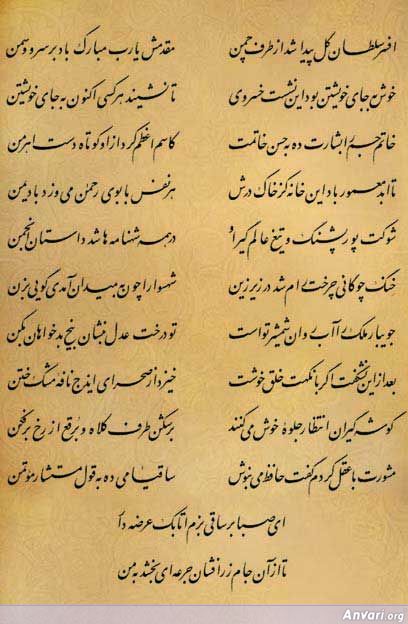 افسر سلطان گل پیدا شد از طرف چمن
مقدمش یارب مبارک باد بر سرو و سمن
خوش به جای خویشتن بود این نشست خسروی
تا نشیند هر کسی اکنون به جای خویشتن
خاتم جم را بشارت ده به حسن خاتمت
کاسم اعظم کرد از او کوتاه دست اهرمن
تا ابد معمور باد این خانه کز خاک درش
هر نفس با بوی رحمن می وزد باد یمن
شوکت پور پشنگ و تیغ عالم گیر او
در همه شهنامه ها شد داستان انجمن
خنگ چوگانی چرخت رام شد در زیر زین
شهسوارا چون به میدان آمدی گویی بزن
جویبار ملک را آب روان شمشیر تو است
تو درخت عدل بنشان بیخ بدخواهان بکن
بعد از این نشکفت اگر با نکهت خلق خوشت
خیزد از صحرای ایذج نافه مشک ختن
گوشه گیران انتظار جلوه خوش می کنند
برشکن طرف کلاه و برقع از رخ برفکن
مشورت با عقل کردم گفت حافظ می بنوش
ساقیا می ده به قول مستشار موتمن
ای صبا بر ساقی بزم اتابک عرضه دار
تا از آن جام زرافشان جرعه ای بخشد به من
Anvari.org